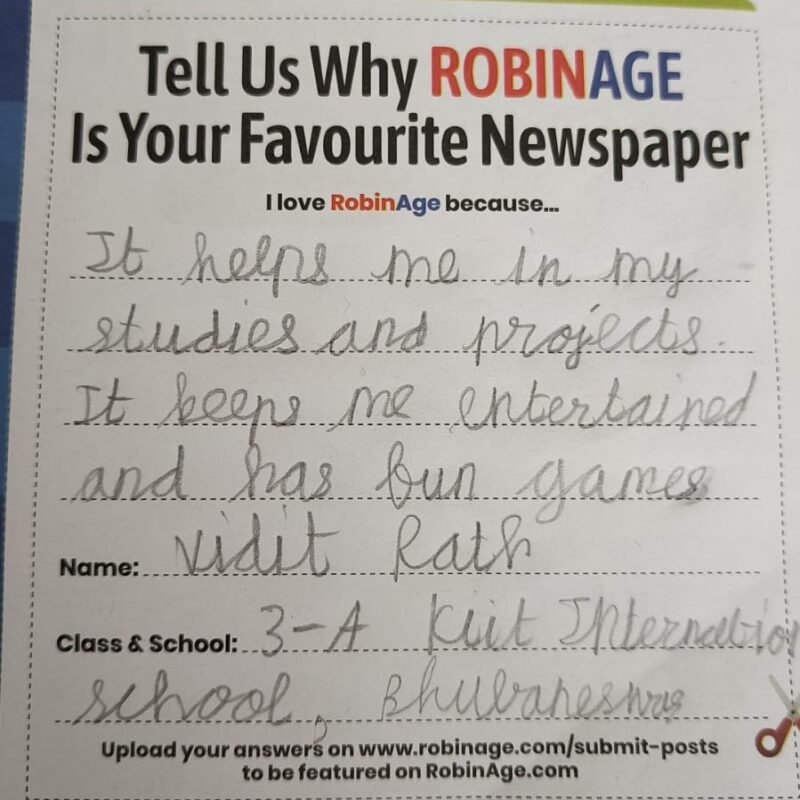 Tell Us Why ROBINAGE
Is Your Favourite Newspaper
I love RobinAge because...
It helps me in my
studies and projects.
It keeps me entertained
and has fun games
Name: Vidit Rath
Class & School: 3-A Kiit Internation
school, Bhubaneswar
Upload your answers on www.robinage.com/submit-posts
to be featured on RobinAge.com